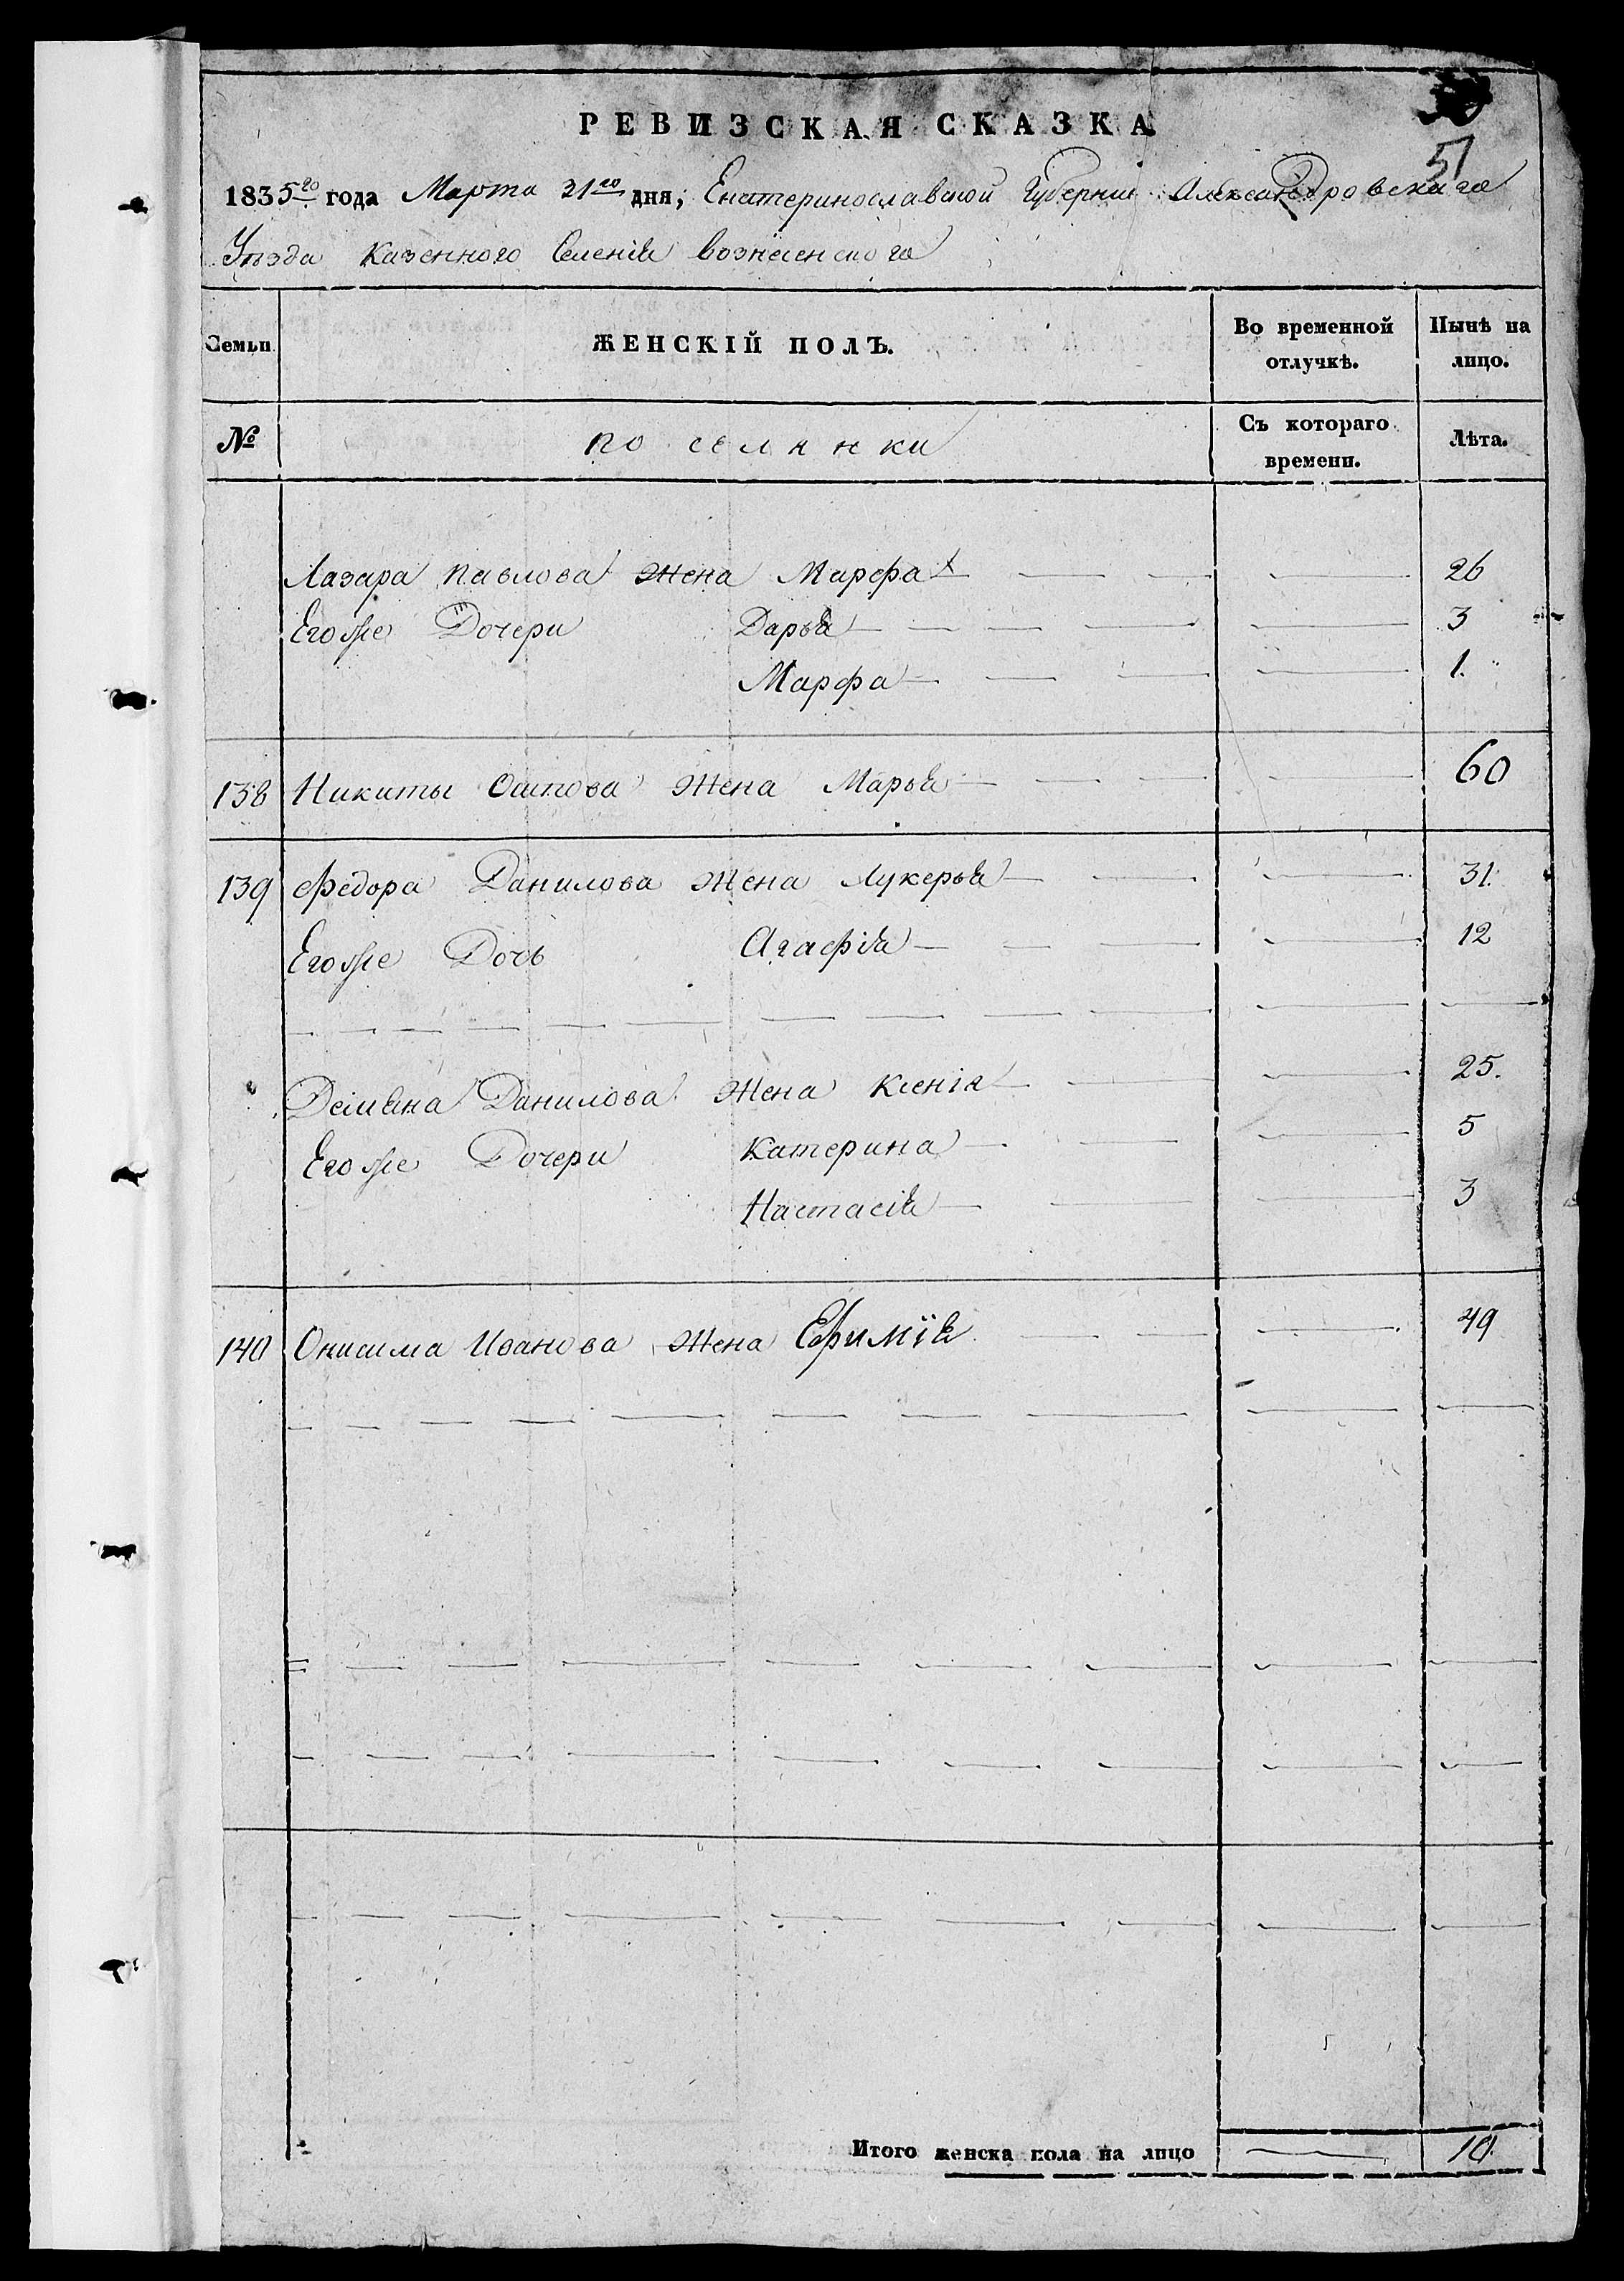 РЕВИЗСКАЯ СКАЗКА
51
1835го года Марта 31го дня, Екатеринославской Губернии Александровскаго
Уѣзда Казенного Селенія вознесенского
Семьи ЖЕНСКІЙ ПОЛЪ. Во временной отлучкѣ. Нынѣ на лицо.
№ поселянки Съ котораго времени. Лѣта.
Лазара Павлова Жена Марфа 26
Егоже Дочери Дарья 3
Марфа 1.
138 Никиты Осипова Жена Марья 60
139 Федора Данилова Жена Лукерья 31.
Егоже Дочь Агафія 12
Демьяна Данилова Жена Ксенія 25.
Егоже Дочери Катерина 5
Настасія 3
140 Онисима Иванова Жена Ефимїя 49
Итого женска пола на лицо 10.